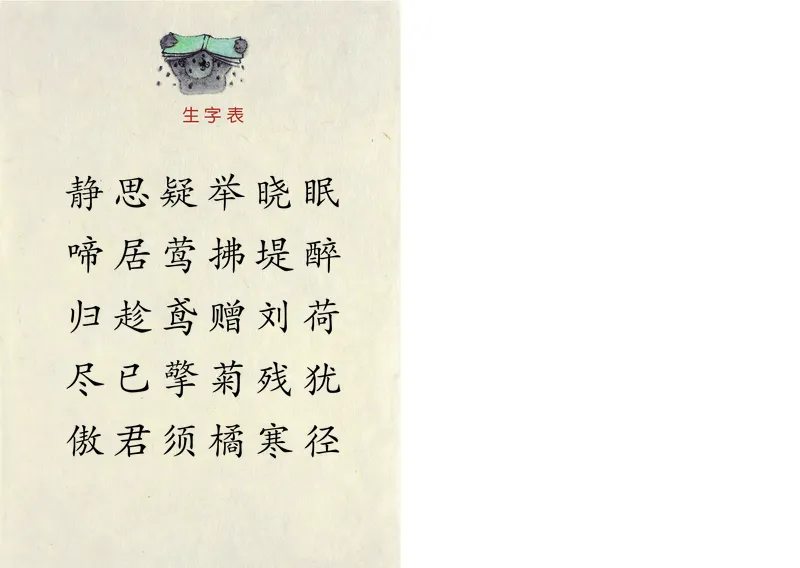 生字表
静思疑举晓眠
啼居莺拂堤醉
归趁鸢赠刘荷
尽已擎菊残犹
傲君须橘寒径